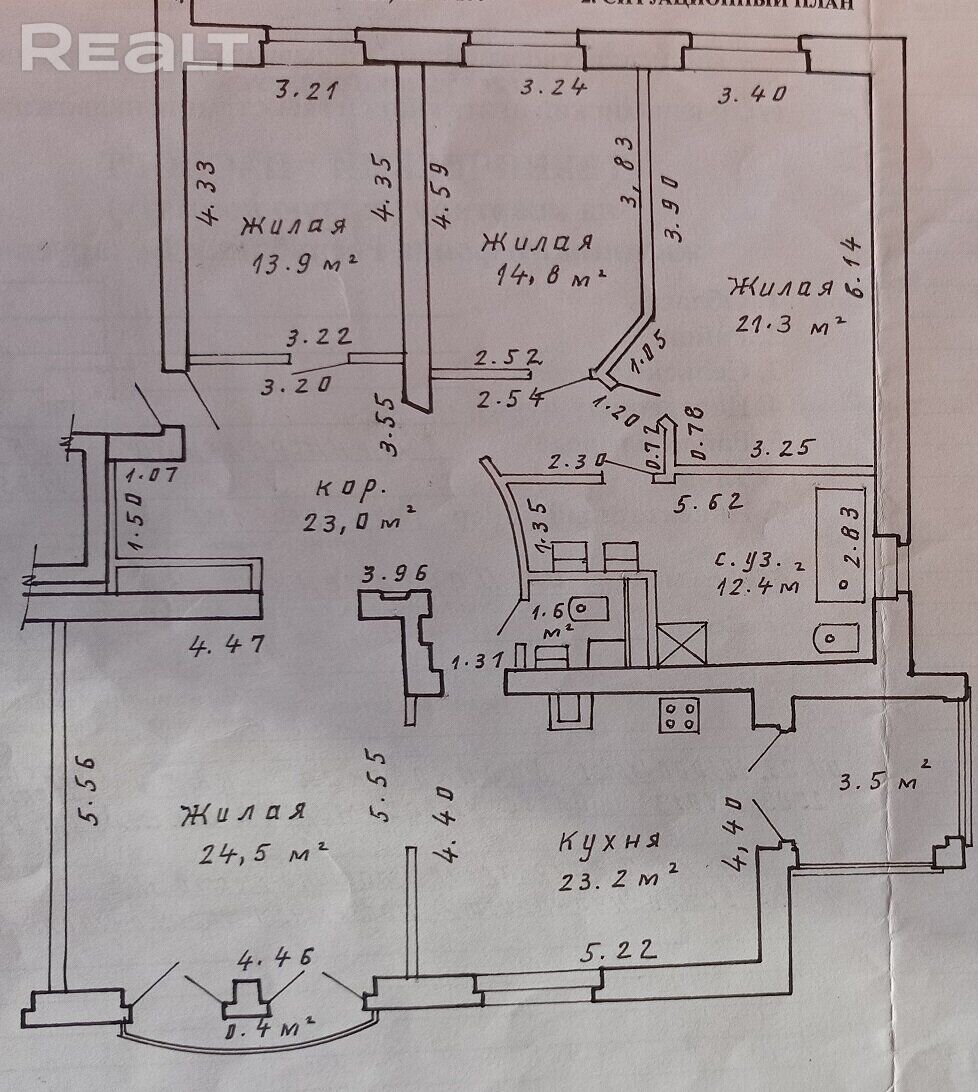 2. СИТУАЦИОННЫЙ ПЛАН
REALT
3.21
3.24
3.40
4.33
4.35
4.59
3,83
3.90
6.14
Жилая
13.9 м²
Жилая
14,8 м²
Жилая
21.3 м²
3.22
3.20
2.52
2.54
1.05
1.20
3.55
0.72
0.78
3.25
2.30
1.07
1.50
кор.
23,0 м²
1.35
5.62
2.83
с.уз.
12.4 м²
3.96
1.6
м²
4.47
1.31
5.56
5.55
4.40
4,40
3.5 м²
Жилая
24,5 м²
Кухня
23.2 м²
4.46
5.22
0.4 м²